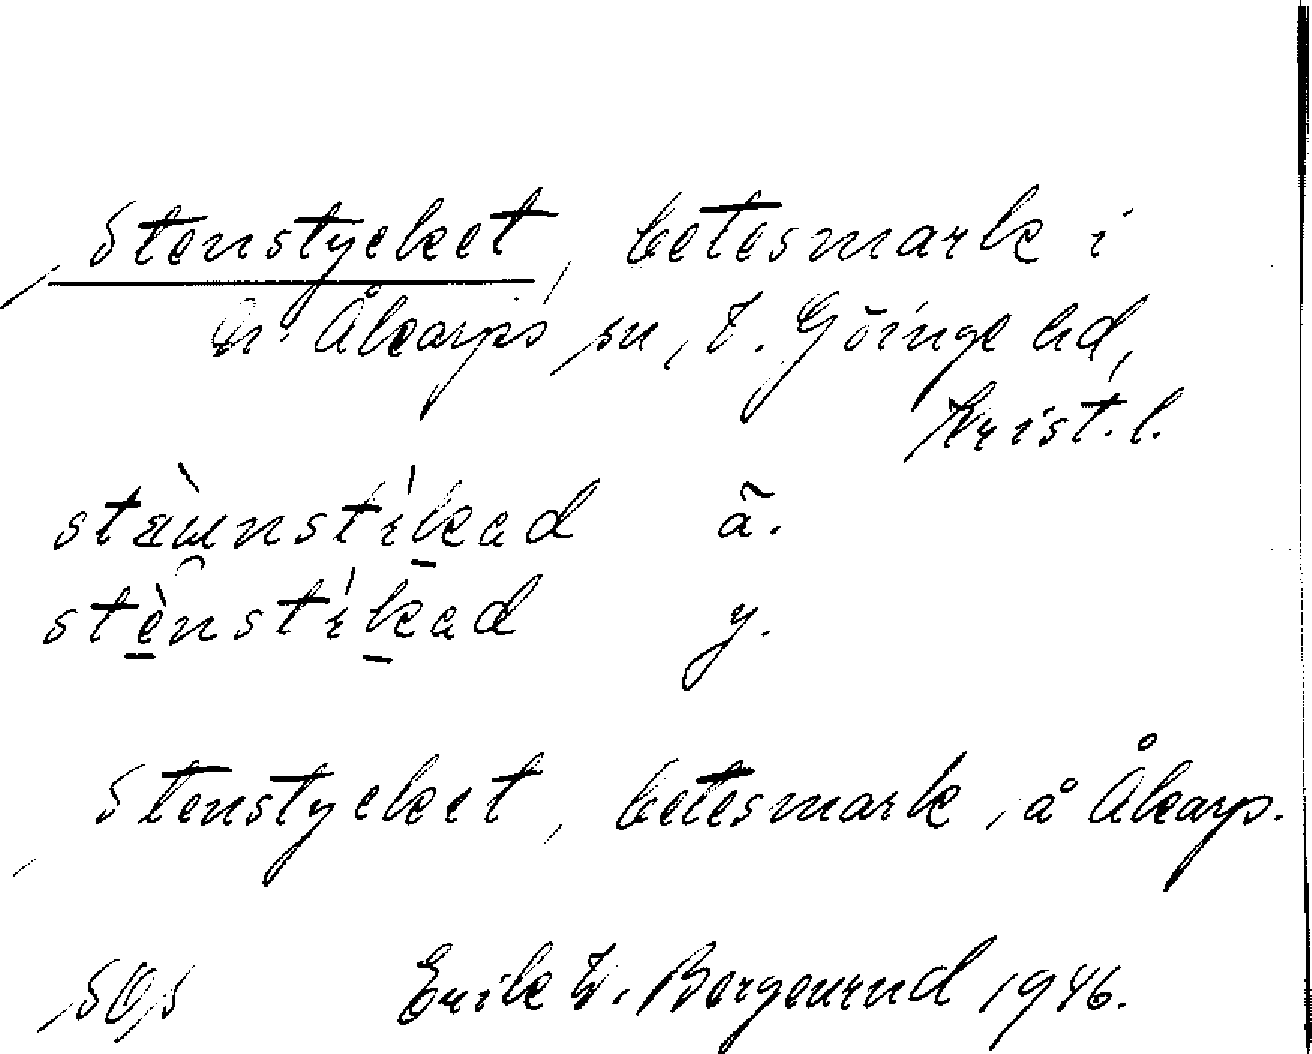 Stenstycket, betesmark i
N. Åkarps sn, V. Göinge hd,
Krist. l.
stæ̀ɯnstìkad ä.
stènstìkad y.
Stenstycket, betesmark, å Åkarp.
SOS Erik W. Bergenrud 1946.